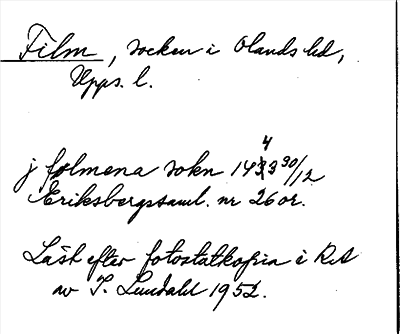 Film, socken i Olands hd,
Upps. l.
4
j folmena sokn 1433 30/12
Eriksbergssaml. nr 26 or.
Läst efter fotostatkopia i RA
av I. Lundahl 1952.